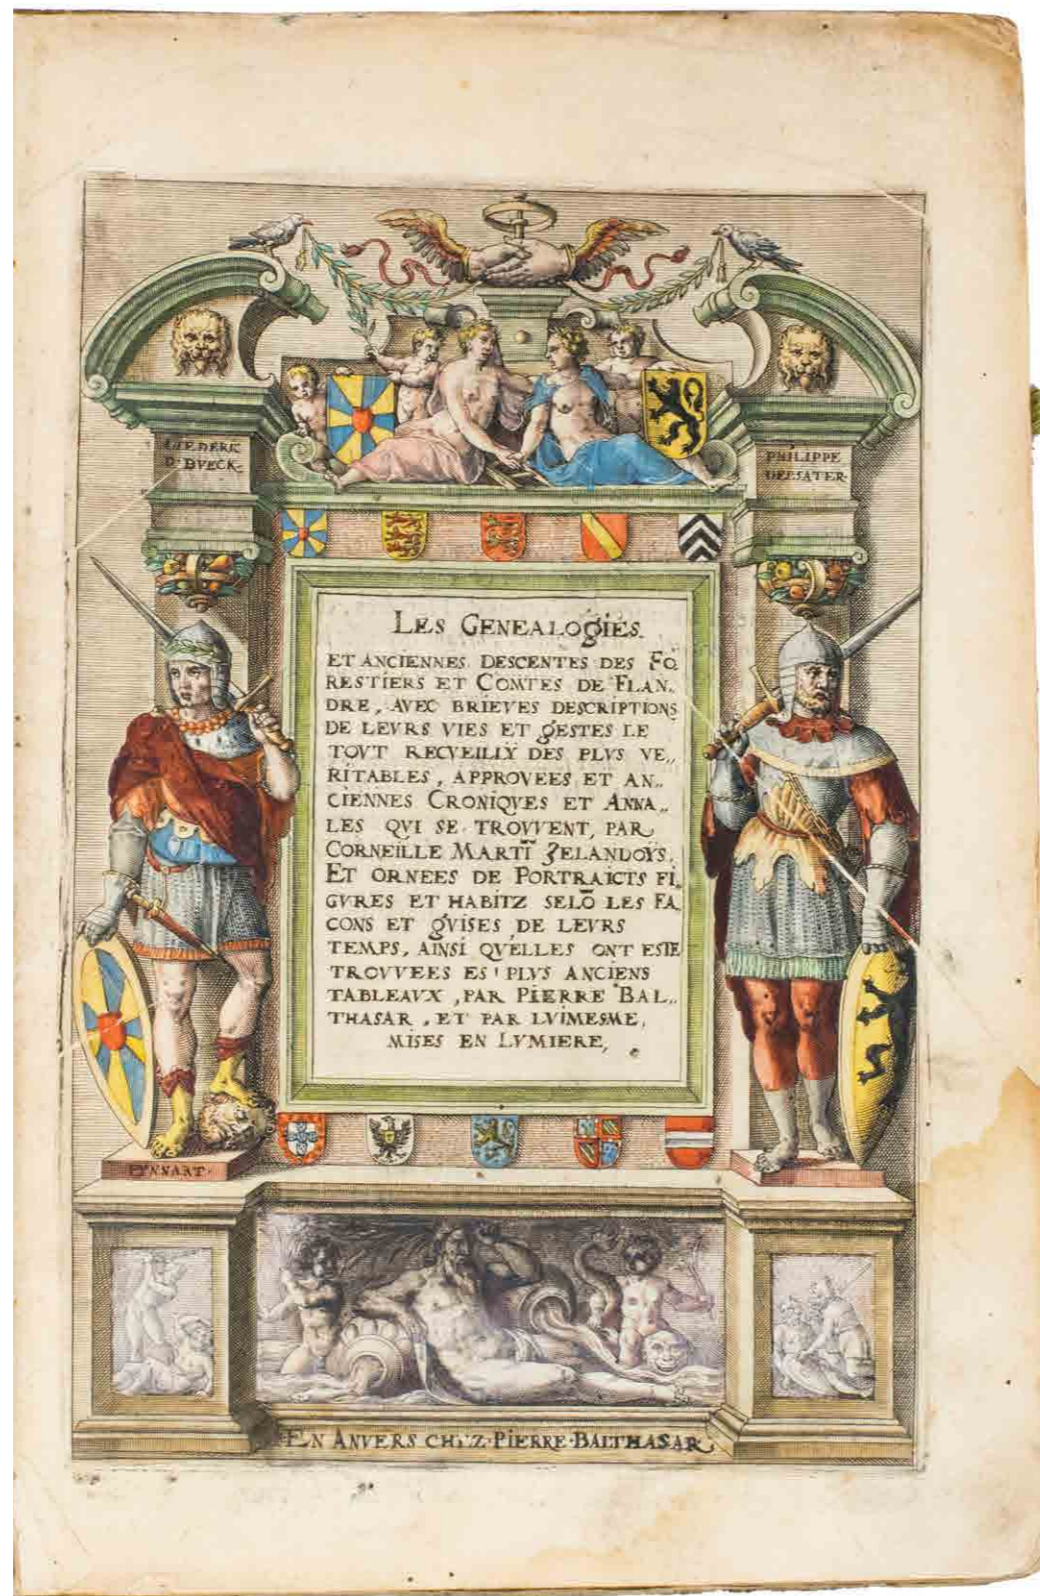 LIEDERIC
D'BVECK
PHILIPPE
DELSATER
LES GENEALOGIES
ET ANCIENNES DESCENTES DES FO
RESTIERS ET COMTES DE FLAN„
DRE, AVEC BRIEVES DESCRIPTIONS
DE LEVRS VIES ET GESTES LE
TOVT RECVEILLY DES PLVS VE„
RITABLES, APPROVEES ET AN„
CIENNES CRONIQVES ET ANNA„
LES QVI SE TROVVENT, PAR
CORNEILLE MARTĪ ZELANDOYS.
ET ORNEES DE PORTRAICTS FI„
GVRES ET HABITZ SELŌ LES FA„
CONS ET GVISES DE LEVRS
TEMPS, AINSI QV'ELLES ONT ESTE
TROVVEES ES' PLVS ANCIENS
TABLEAVX, PAR PIERRE BAL„
THASAR, ET PAR LVIMESME,
MISES EN LVMIERE,
FYNNART
EN ANVERS CHEZ PIERRE BALTHASAR